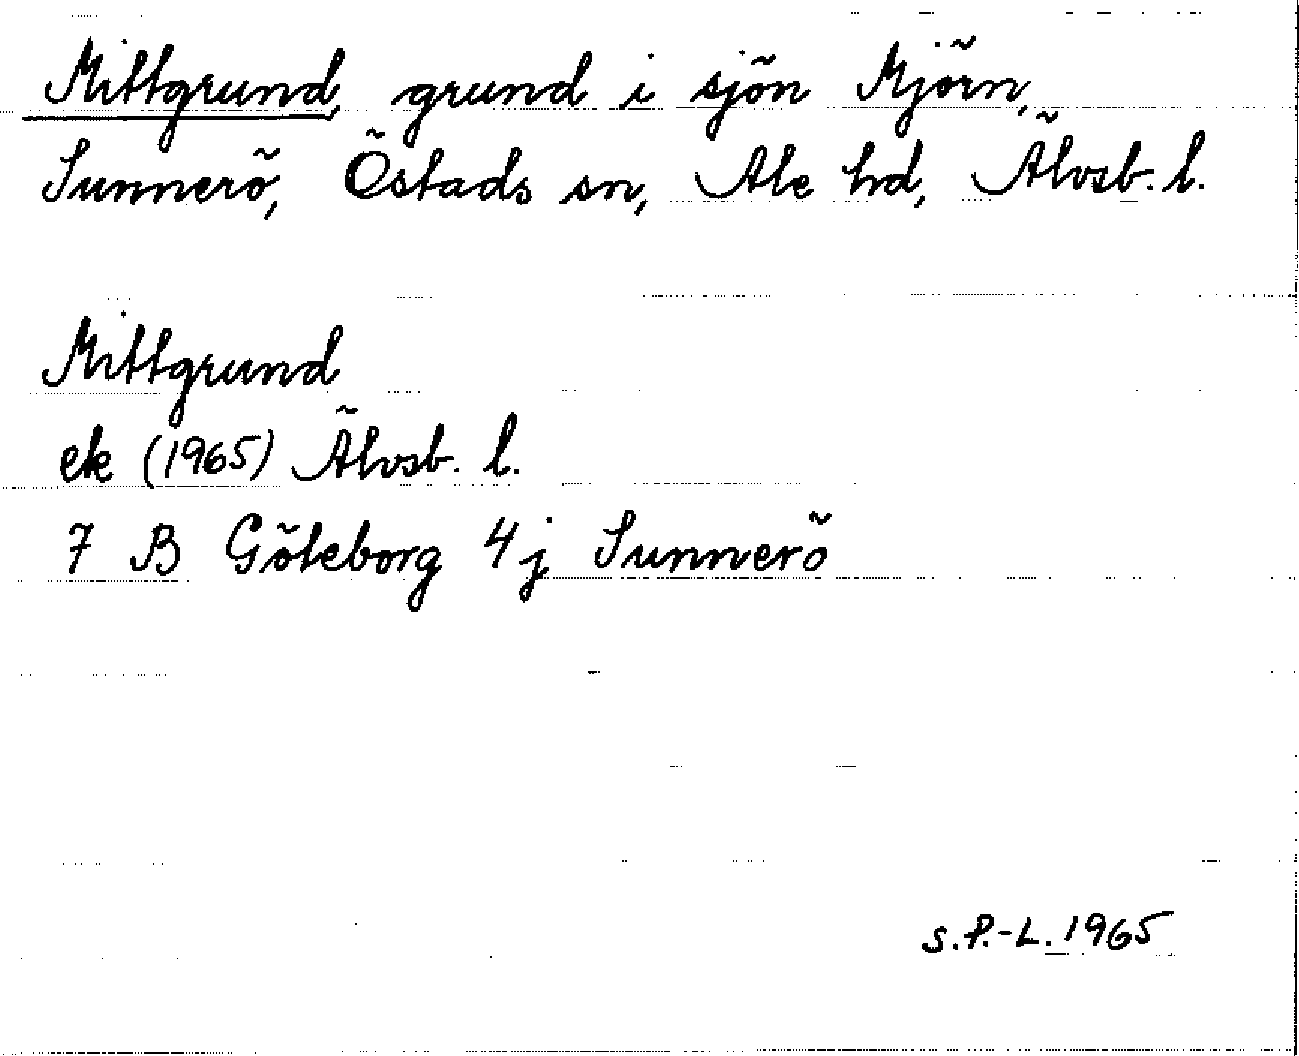 Mittgrund, grund i sjön Mjörn,
Sunnerö, Östads sn, Ale hd, Älvsb. l.
Mittgrund
ek (1965) Älvsb. l.
7 B Göteborg 4j Sunnerö
S.P.-L. 1965